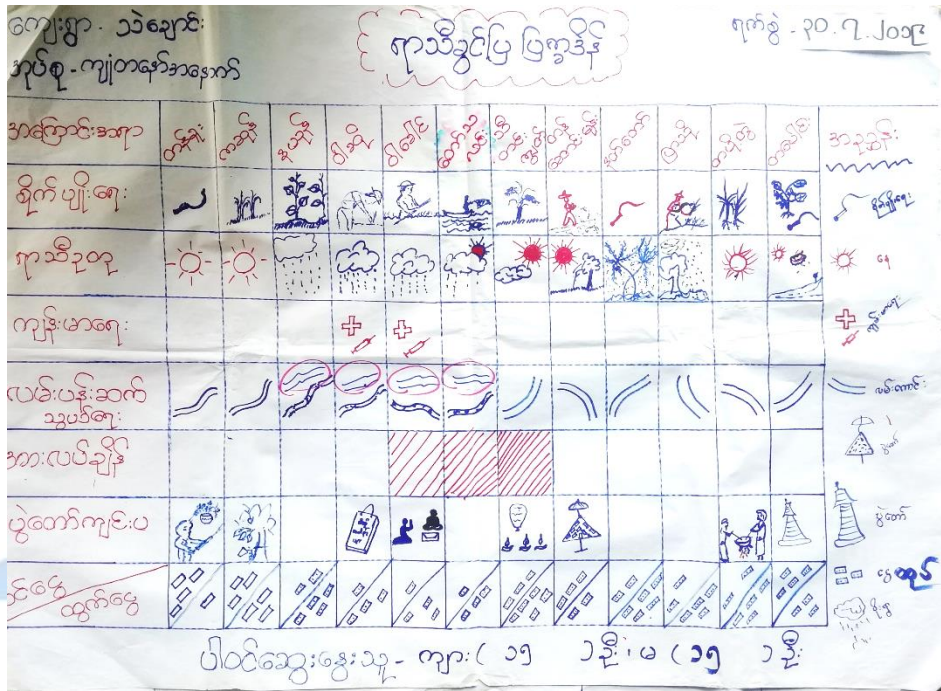 ကျေးရွာ - သဲချောင်း
ရာသီခွင်ပြ ပြက္ခဒိန်
ရက်စွဲ - ၃၀.၇.၂၀၁၉
အုပ်စု - ကျုံတနော်အနောက်
အကြောင်းအရာ တန်ခူး ကဆုန် နယုန် ဝါဆို ဝါခေါင် တော်သလင်း သီတင်းကျွတ် တန်ဆောင်မုန်း နတ်တော် ပြာသို တပို့တွဲ တပေါင်း အညွှန်း
စိုက်ပျိုးရေး စိုက်ပျိုးရေး
ရာသီဥတု နေ
ကျန်းမာရေး ကျန်းမာရေး
လမ်းပန်းဆက်သွယ်ရေး လမ်းကောင်း
အားလပ်ချိန်
ပွဲတော်ကျင်းပ ပွဲတော်
ဝင်ငွေ ထွက်ငွေ ငွေထုပ်
မိုးရွာ
ပါဝင်ဆွေးနွေးသူ - ကျား ( ၁၅ ) ဦး ၊ မ ( ၁၅ ) ဦး